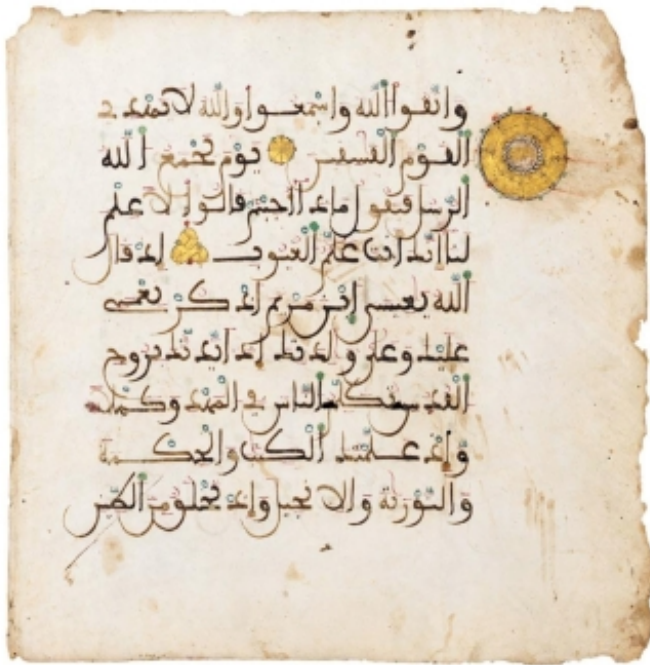 واتقوا الله واسمعوا والله لا يهدے
القوم الفسقين يوم يجمع الله
الرسل فيقول ماذا أجبتم قالوا لا علم
لنا إنك أنت علم الغيوب إذ قال
الله يعيسى ابن مريم اذكر نعمتى
عليك وعلى ولدتك إذ أيدتك بروح
القدس تكلم الناس في المهد وكهلا
وإذ علمتك الكتب والحكمة
والتورية والانجيل وإذ تخلق من الطين